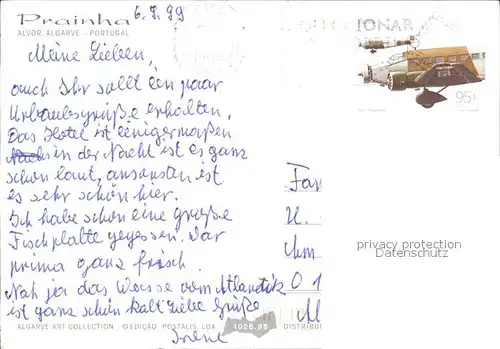 Prainha
ALVOR, ALGARVE - PORTUGAL
6.7.99
CIONAR
95$
Meine Lieben,
auch Ihr sollt ein paar
Urlaubsgrüße erhalten.
Das Hotel ist einigermaßen
in der Nacht ist es ganz
schön laut, ansonsten ist
es sehr schön hier.
Ich habe schon eine große
Fischplatte gegessen. War
prima ganz frisch.
Nah ja das Wasser vom Atlantik
ist ganz schön kalt. Liebe Grüße
Irene
Fam
U.
Am
0 1
privacy protection
Datenschutz
ALGARVE ART COLLECTION © EDIÇÃO POSTALIS, LDA 1026.98 DISTRIBU